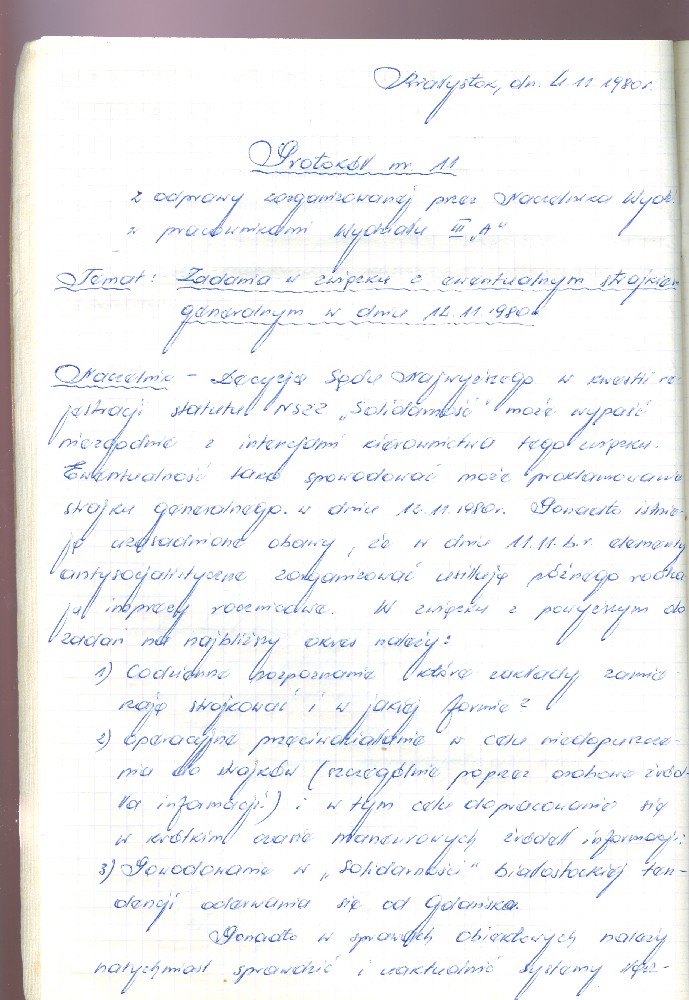 Białystok, dn. 4.11.1980r.
Protokół nr 11
z odprawy zorganizowanej przez Naczelnika Wydz.
z pracownikami Wydziału III „A"
Temat: Zadania w związku z ewentualnym strajkiem
generalnym w dniu 12.11.1980r.
Naczelnik - Decyzja Sądu Najwyższego w kwestii re-
jestracji statutu NSZZ „Solidarność" może wypaść
niezgodnie z intencjami kierownictwa tego związku.
Ewentualność taka spowodować może proklamowanie
strajku generalnego w dniu 12.11.1980r. Ponadto istnie-
ją uzasadnione obawy, że w dniu 11.11.b.r. elementy
antysocjalistyczne zorganizować usiłują różnego rodza-
ju imprezy rocznicowe. W związku z powyższym do
zadań na najbliższy okres należy:
1) Codzienne rozpoznanie które zakłady zamie-
rzają strajkować i w jakiej formie?
2) operacyjne przeciwdziałanie w celu niedopuszcze-
nia do strajków (szczególnie poprzez osobowe źród-
ła informacji!) i w tym celu dopracowanie się
w krótkim czasie manewrowych źródeł informacji!
3) Powodowanie w „Solidarności" białostockiej ten-
dencji oderwania się od Gdańska.
Ponadto w sprawach obiektowych należy
natychmiast sprawdzić i uaktualnić systemy łącz-